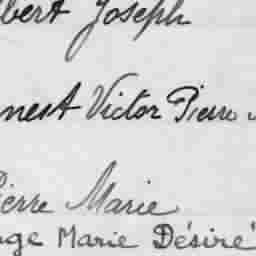 lbert Joseph
nest Victor Pierre
Pierre Marie
nge Marie Désiré